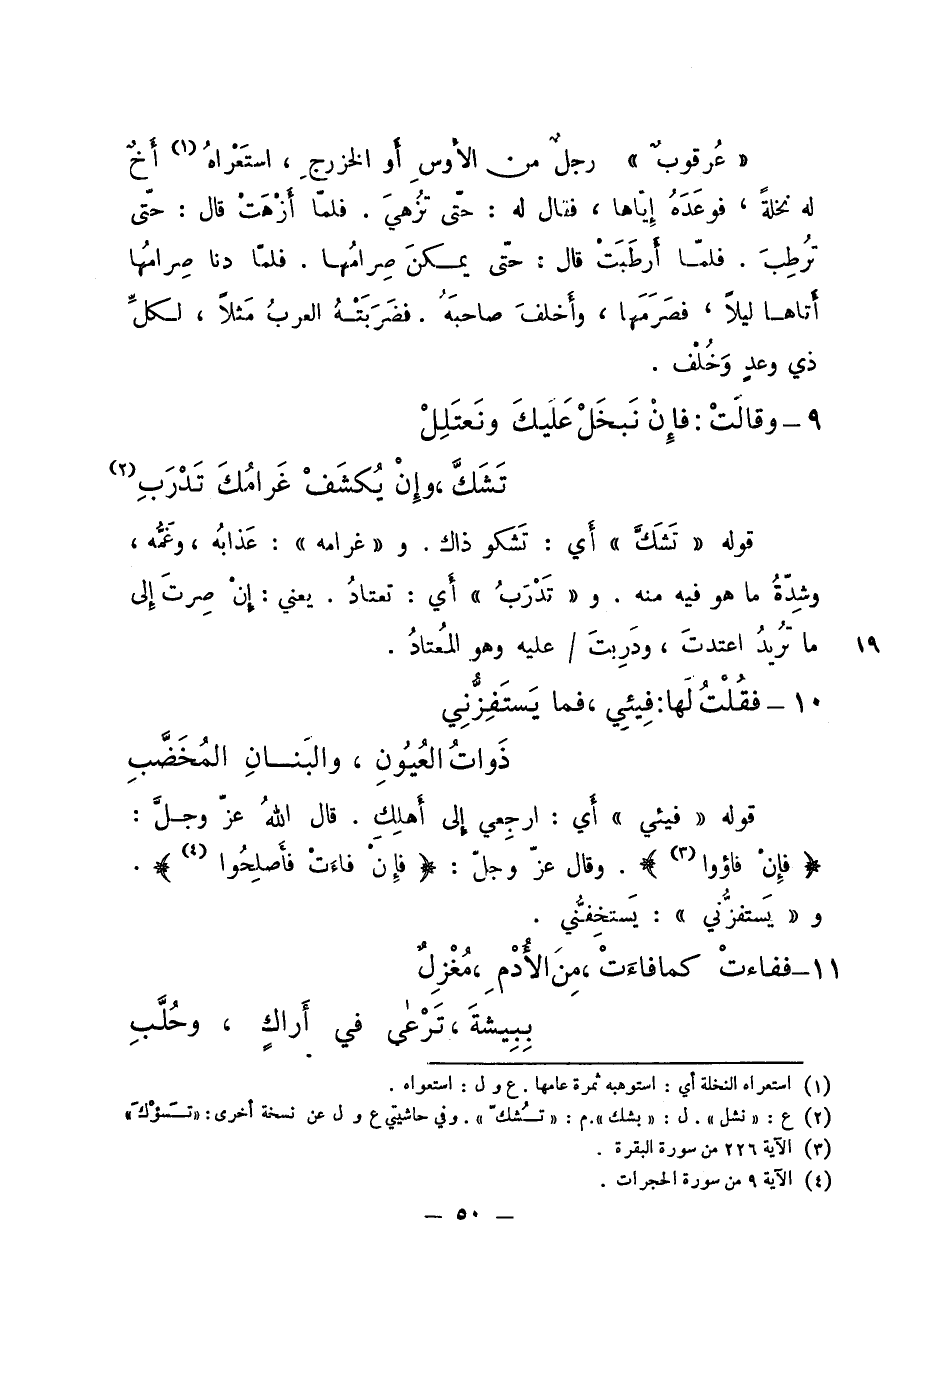 « عُرقوبٌ » رجلٌ من الأوسِ أَو الخزرجِ ، استَعْراهُ (١) أَخٌ
له نخلةً ، فوعَدَهُ إِيّاها ، فقال له : حتّى تُزْهيَ . فلمّا أَزْهَتْ قال : حتّى
تُرطِبَ . فلمّا أَرطَبَتْ قال : حتّى يمكنَ صِرامُها . فلمّا دنا صِرامُها
أَتاها ليلاً ، فصَرَمَها ، وأَخلفَ صاحبَهُ . فضَرَبَتْهُ العربُ مَثلاً ، لكلِّ
ذي وعدٍ وَخُلْف .
٩ – وقالَتْ : فإِنْ نَبخَلْ عَلَيكَ ونَعتَلِلْ
تَشَكَّ ، وإِنْ يُكشَفْ غَرامُكَ تَدْرَبِ (٢)
قوله « تَشَكَّ » أَي : تَشكو ذاك . و « غرامه » : عَذابُه ، وغَمُّه ،
وشِدّةُ ما هو فيه منه . و « تَدْرَبُ » أَي : تعتادُ . يعني : إِنْ صِرتَ إِلى
ما تُريدُ اعتدتَ ، ودَرِبتَ / عليه وهو المُعتادُ . ١٩
١٠ – فقُلْتُ لَها : فِيئِي ، فما يَستَفِزُّنِي
ذَواتُ العُيُونِ ، والبَنانِ المُخَضَّبِ
قوله « فيئي » أَي : ارجِعي إِلى أَهلِكِ . قال اللهُ عزّ وجلَّ :
﴿ فإِنْ فاؤوا (٣) ﴾ . وقال عزّ وجلّ : ﴿ فإِنْ فاءَتْ فأَصلِحُوا (٤) ﴾ .
و « يَستفزُّني » : يَستخِفُّني .
١١ – ففاءتْ كما فاءَتْ ، مِنَ الأُدْمِ ، مُغْزِلٌ
بِبِيشةَ ، تَرْعٰى في أَراكٍ ، وحُلَّبِ
(١) استعراه النخلة أي : استوهبه ثمرة عامها . ع و ل : استعواه .
(٢) ع : « نشل » . ل : « بشك » . م : « تُشكّ » . وفي حاشيتي ع و ل عن نسخة أخرى : « تَسؤْكَ »
(٣) الآية ٢٢٦ من سورة البقرة .
(٤) الآية ٩ من سورة الحجرات .
– ٥٠ –